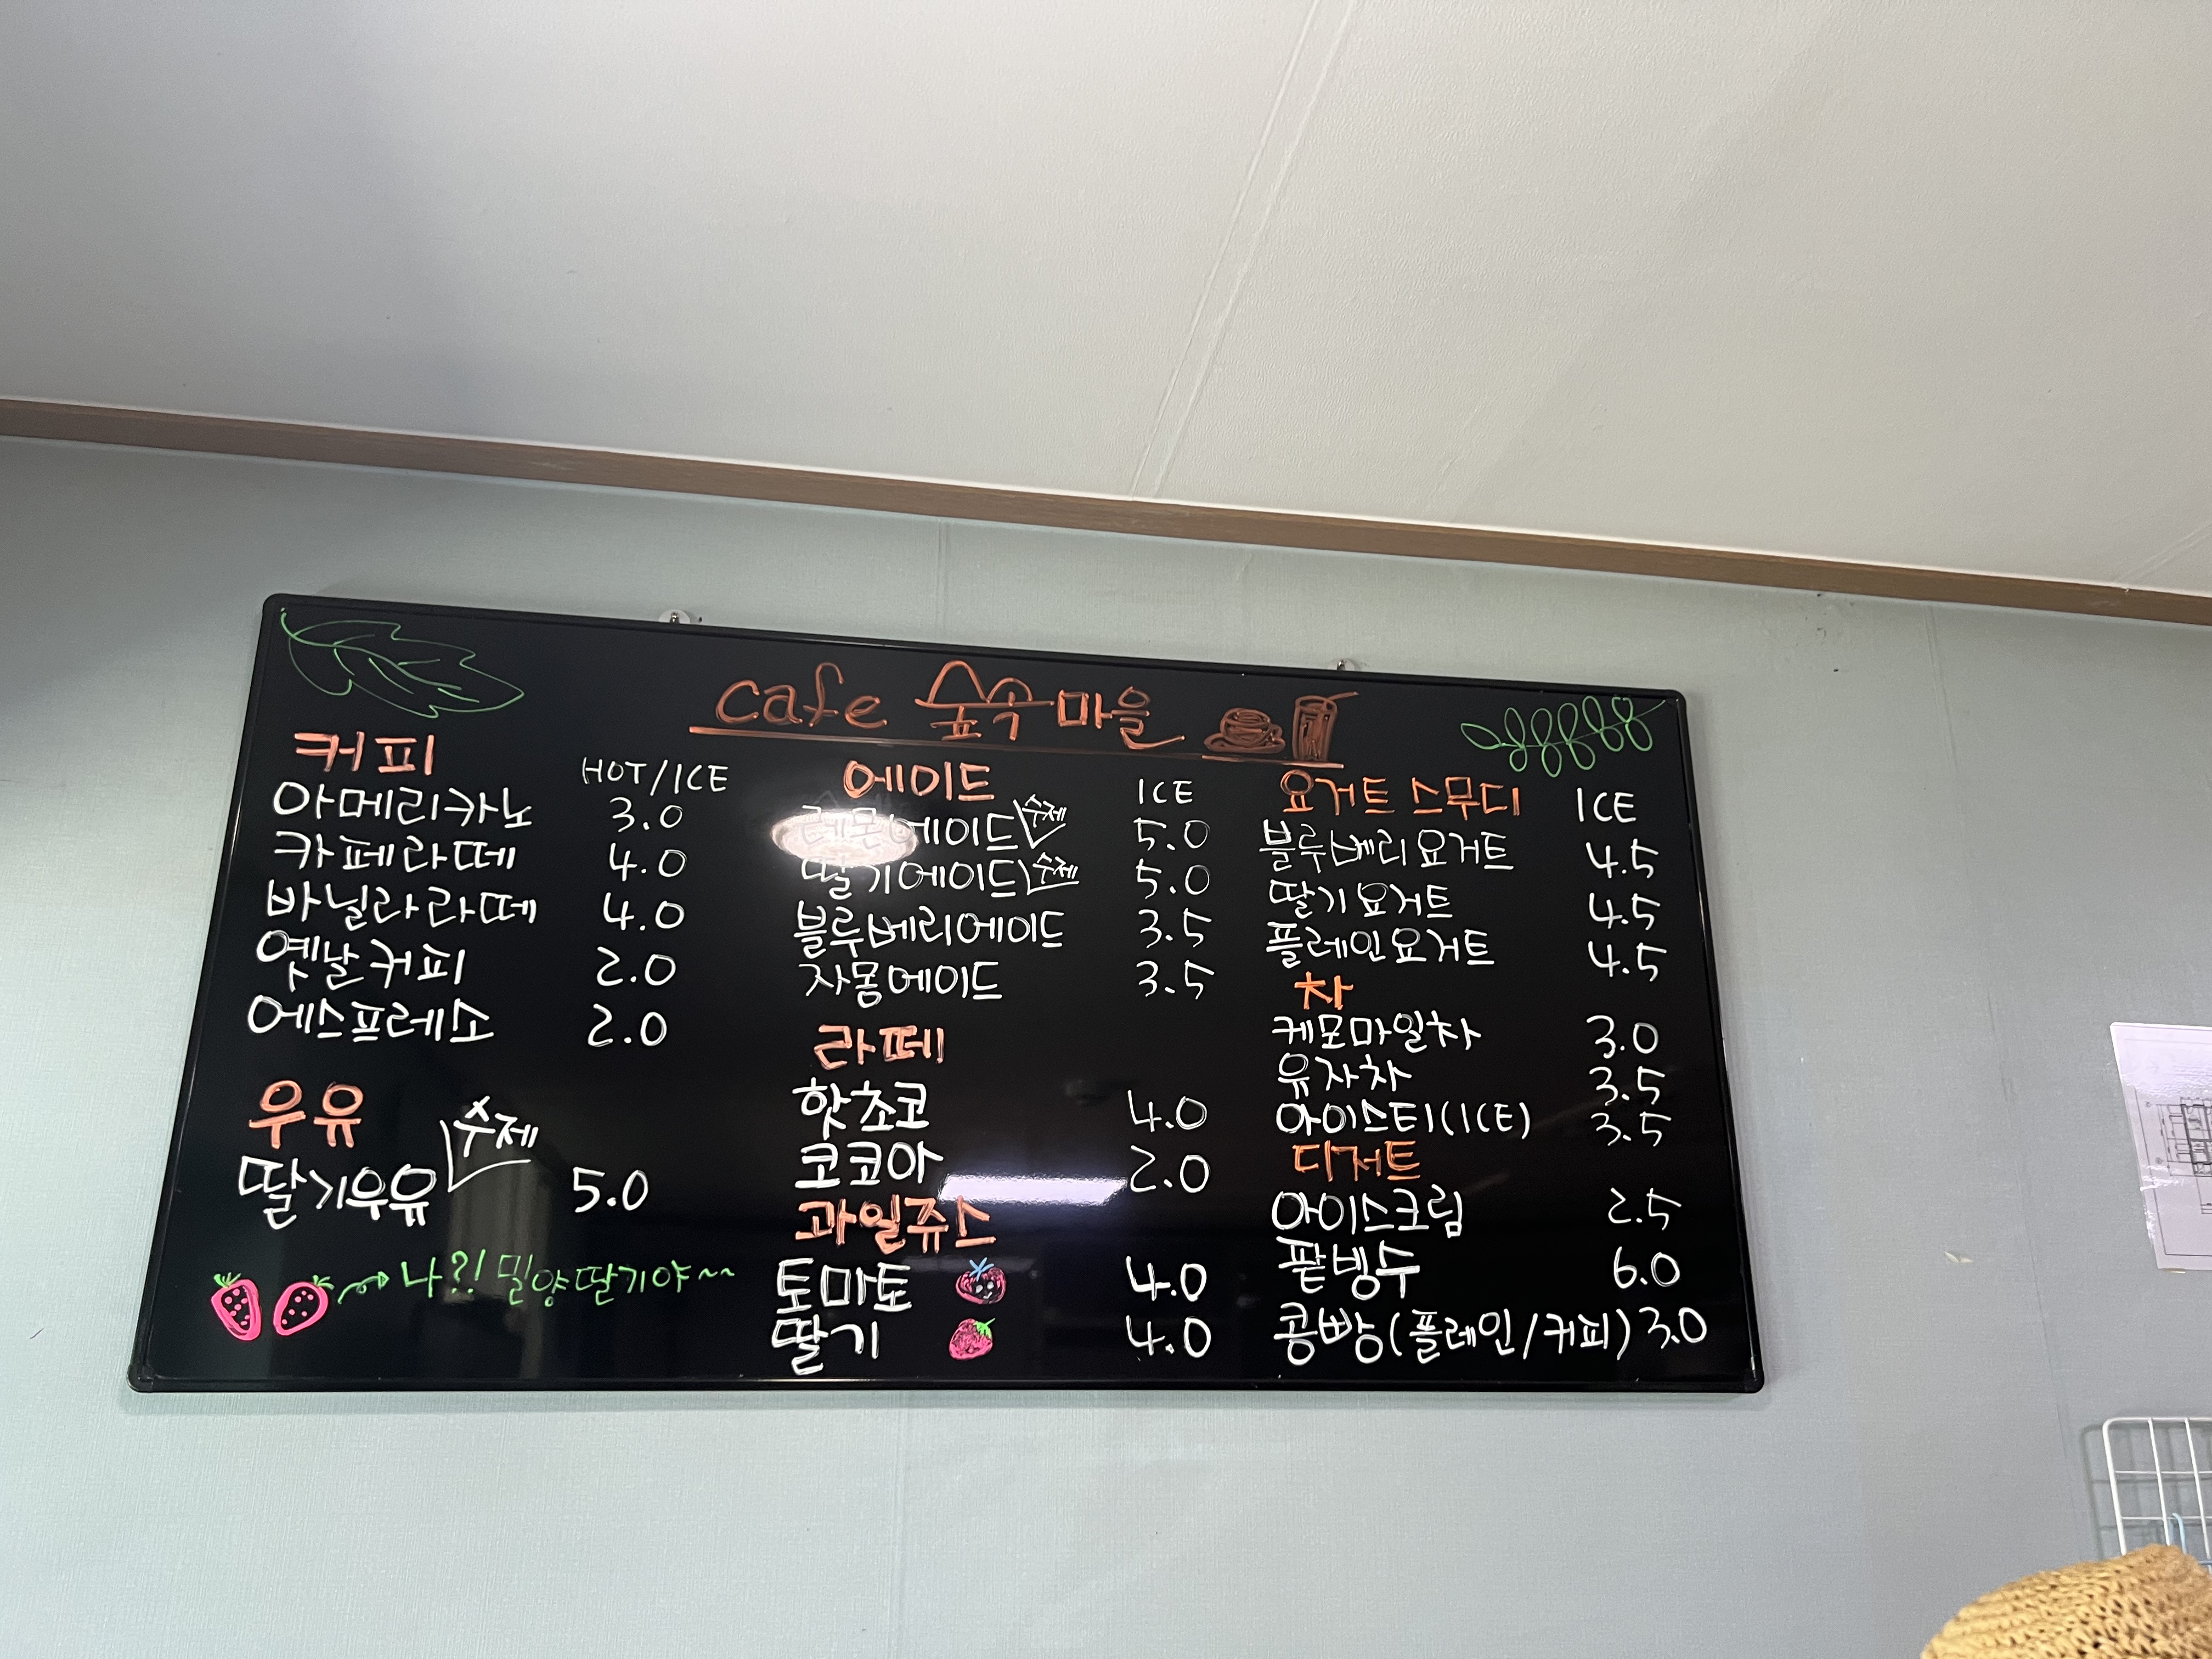 cafe 숲속마을
커피 HOT/ICE
아메리카노 3.0
카페라떼 4.0
바닐라라떼 4.0
옛날커피 2.0
에스프레소 2.0
우유
딸기우유 수제 5.0
나?! 밀양딸기야~~
에이드 ICE
레몬에이드 수제 5.0
딸기에이드 수제 5.0
블루베리에이드 3.5
자몽에이드 3.5
라떼
핫초코 4.0
코코아 2.0
과일쥬스
토마토 4.0
딸기 4.0
요거트 스무디 ICE
블루베리요거트 4.5
딸기요거트 4.5
플레인요거트 4.5
차
케모마일차 3.0
유자차 3.5
아이스티(ICE) 3.5
디저트
아이스크림 2.5
팥빙수 6.0
콩빵(플레인/커피) 3.0